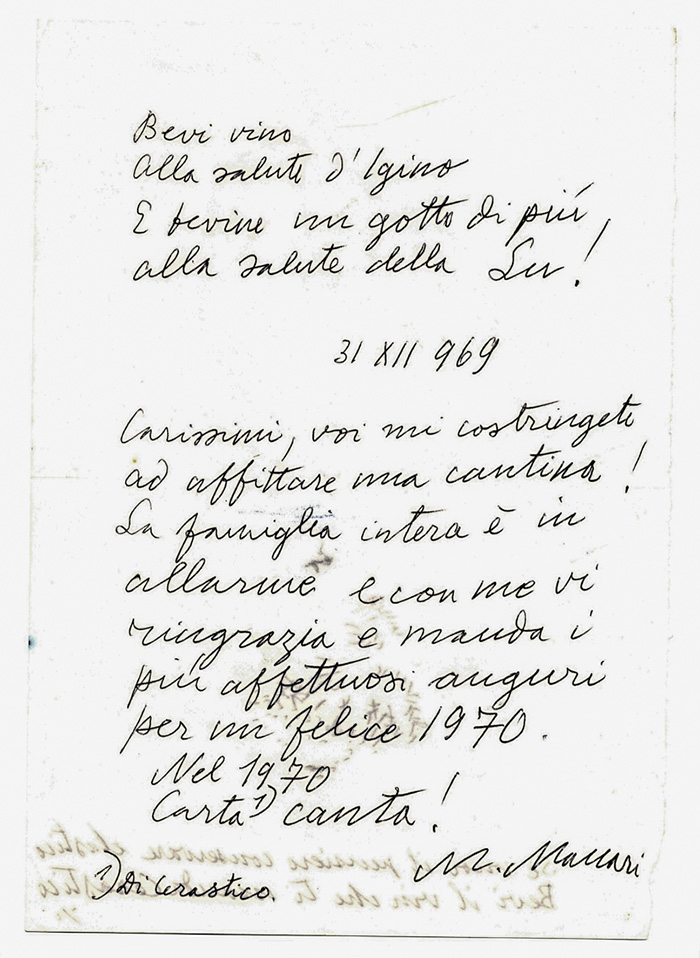 Bevi vino
Alla salute d'Igino
E bevine un gotto di più,
alla salute della Lu!
31 XII 969
Carissimi, voi mi costringete
ad affittare una cantina!
La famiglia intera è in
allarme e con me vi
ringrazia e manda i
più affettuosi auguri
per un felice 1970.
Nel 1970
Carta 1) canta!
M. Maccari
1) Di Cerastico.
pensiero conservare elastico
Bevi il vin che ti